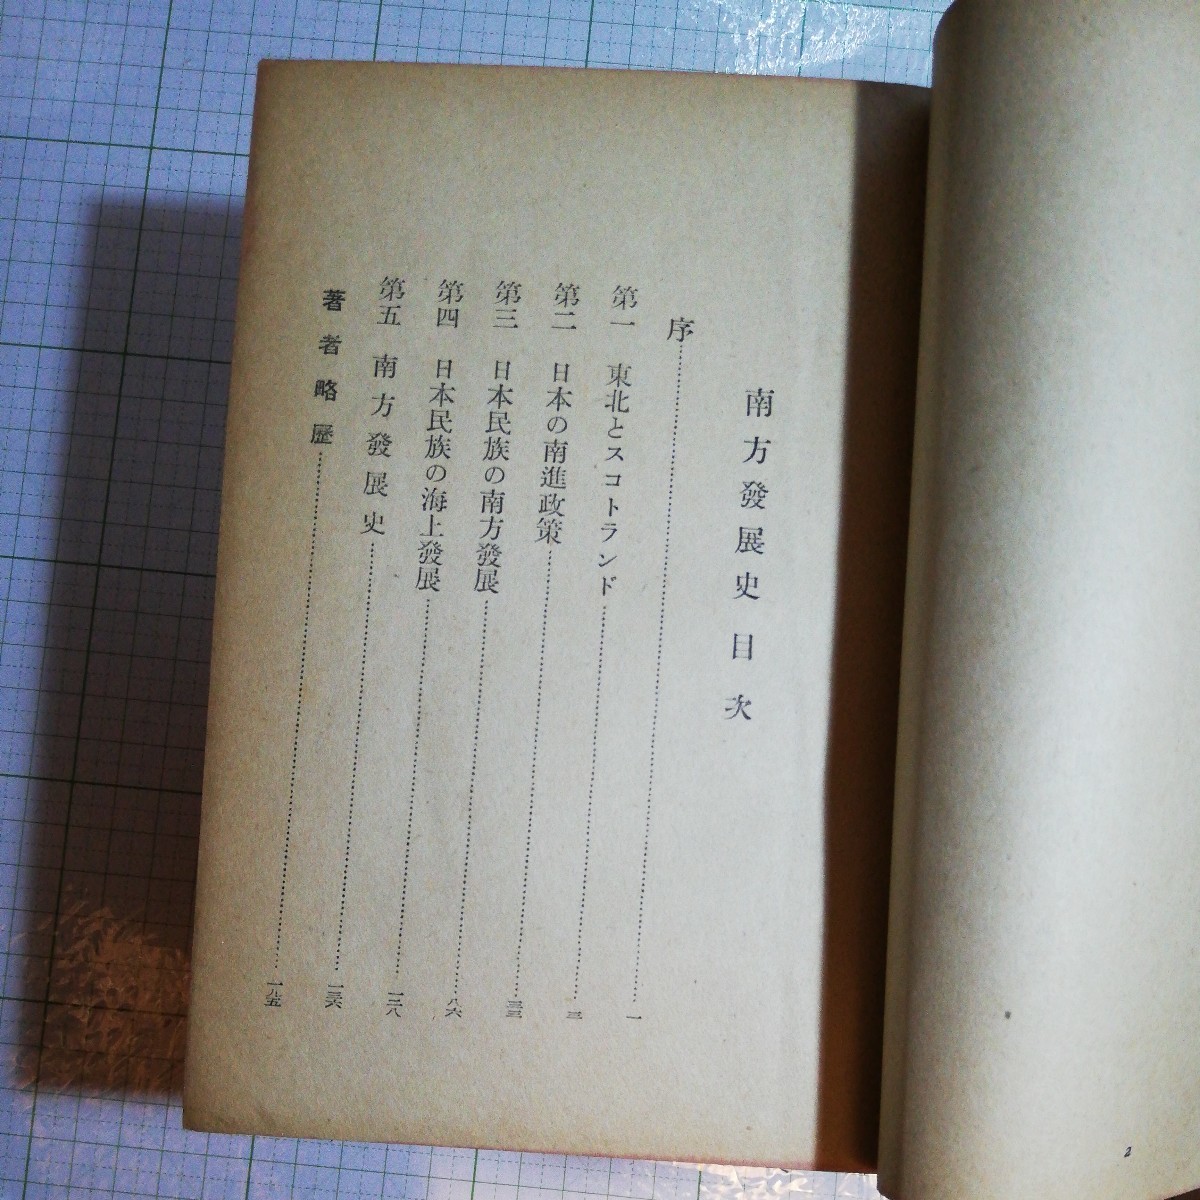 南方發展史目次
序……一
第一 東北とスコトランド……三
第二 日本の南進政策……三三
第三 日本民族の南方發展……八六
第四 日本民族の海上發展……一二八
第五 南方發展史……一三六
著者略歷……一九五
2